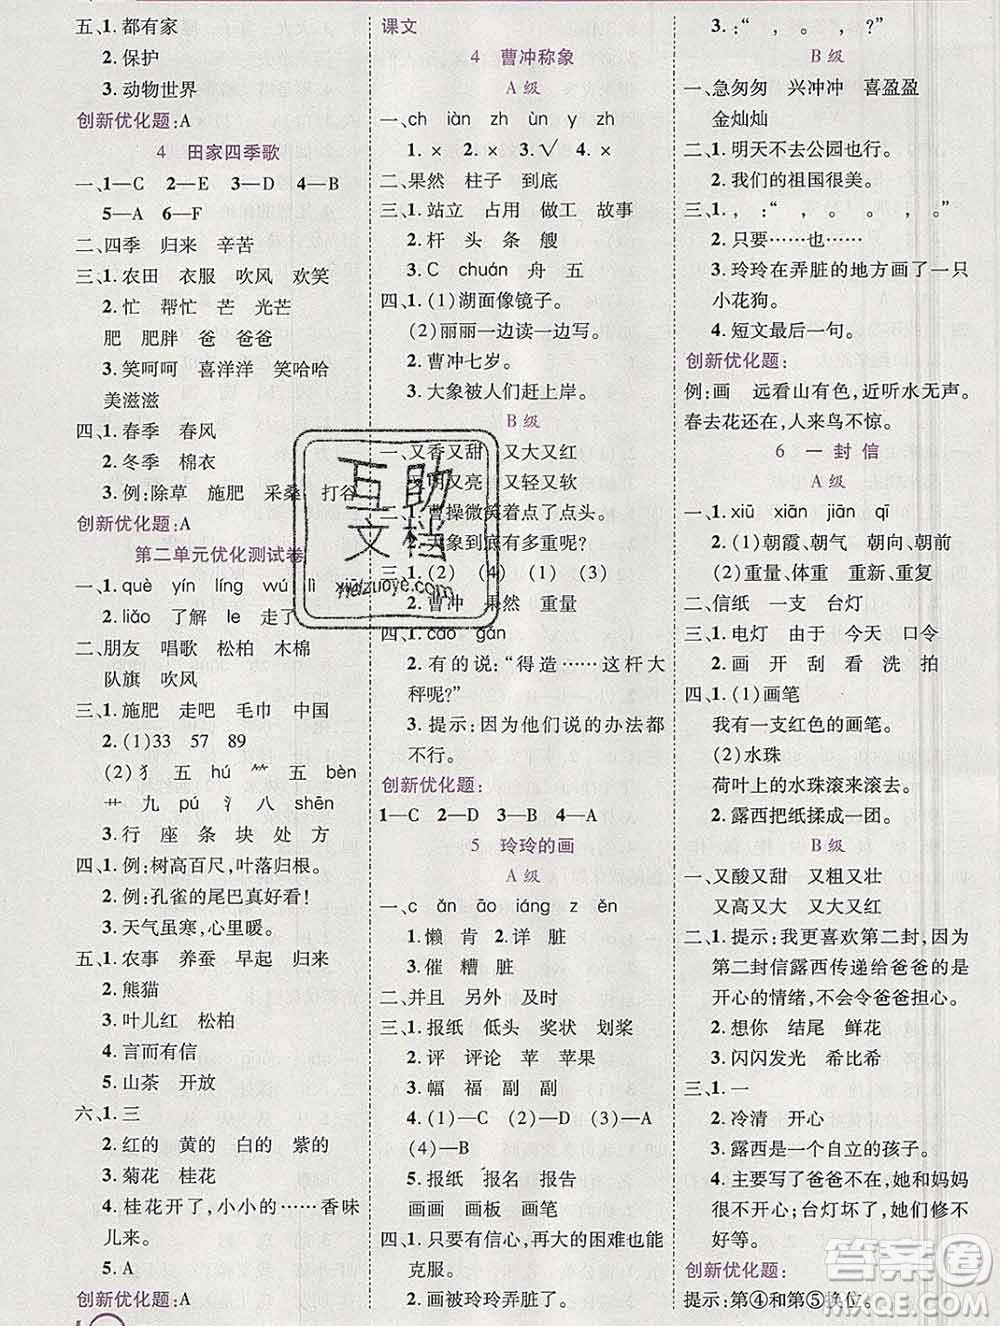 五、1. 都有家
2. 保护
3. 动物世界
创新优化题:A
4 田家四季歌
一、1—C 2—E 3—D 4—B
5—A 6—F
二、四季 归来 辛苦
三、1. 农田 衣服 吹风 欢笑
2. 忙 帮忙 芒 光芒
肥 肥胖 爸 爸爸
3. 笑呵呵 喜洋洋 笑哈哈
美滋滋
四、1. 春季 春风
2. 冬季 棉衣
3. 例:除草 施肥 采桑 打谷
创新优化题:A
第二单元优化测试卷
一、1. què yín líng wú lì
2. liǎo 了解 le 走了
二、朋友 唱歌 松柏 木棉
队旗 吹风
三、1. 施肥 走吧 毛巾 中国
2. (1)33 57 89
(2)犭 五 hú ⺮ 五 bèn
艹 九 pú 氵 八 shēn
3. 行 座 条 块 处 方
四、1. 例:树高百尺,叶落归根。
2. 例:孔雀的尾巴真好看!
3. 天气虽寒,心里暖。
五、1. 农事 养蚕 早起 归来
2. 熊猫
3. 叶儿红 松柏
4. 言而有信
5. 山茶 开放
六、1. 三
2. 红的 黄的 白的 紫的
3. 菊花 桂花
4. 桂花开了,小小的……香味
儿来。
5. A
创新优化题:A
课文
4 曹冲称象
A 级
一、ch iàn zh ùn y zh
1. × 2. × 3. √ 4. ×
二、果然 柱子 到底
三、1. 站立 占用 做工 故事
2. 杆 头 条 艘
3. C chuán 舟 五
四、1. (1)湖面像镜子。
(2)丽丽一边读一边写。
2. 曹冲七岁。
3. 大象被人们赶上岸。
B 级
一、又香又甜 又大又红
又明又亮 又轻又软
二、1. 曹操微笑着点了点头。
2. 大象到底有多重呢?
三、1. (2) (4) (1) (3)
2. 曹冲 果然 重量
四、1. cāo gǎn
2. 有的说:“得造……这杆大
秤呢?”
3. 提示:因为他们说的办法都
不行。
创新优化题:
1—C 2—D 3—B 4—A
5 玲玲的画
A 级
一、c ǎn āo iáng z ěn
1. 懒 肯 2. 详 脏
3. 催 糟 脏
二、并且 另外 及时
三、1. 报纸 低头 奖状 划桨
2. 评 评论 苹 苹果
3. 幅 福 副 副
4. (1)—C (2)—D (3)—A
(4)—B
5. 报纸 报名 报告
画画 画板 画笔
四、1. 只要有信心,再大的困难也能
克服。
2. 画被玲玲弄脏了。
3. :“ , 。 , ?”
B 级
一、急匆匆 兴冲冲 喜盈盈
金灿灿
二、1. 明天不去公园也行。
2. 我们的祖国很美。
三、1. , :“ , 。 。 , 。”
2. 只要……也……
3. 玲玲在弄脏的地方画了一只
小花狗。
4. 短文最后一句。
创新优化题:
例:画 远看山有色,近听水无声。
春去花还在,人来鸟不惊。
6 一封信
A 级
一、1. xiū xiān jiān qī
2. (1)朝霞、朝气 朝向、朝前
(2)重量、体重 重新、重复
二、信纸 一支 台灯
三、1. 电灯 由于 今天 口令
2. 画 开 刮 看 洗 拍
四、1. (1)画笔
我有一支红色的画笔。
(2)水珠
荷叶上的水珠滚来滚去。
2. 露西把纸揉成一团。
B 级
一、又酸又甜 又粗又壮
又高又大 又大又圆
二、1. 提示:我更喜欢第二封,因为
第二封信露西传递给爸爸的是
开心的情绪,不会让爸爸担心。
2. 想你 结尾 鲜花
3. 闪闪发光 希比希
三、1. 一
2. 冷清 开心
3. 露西是一个自立的孩子。
4. 主要写了爸爸不在,她和妈妈
过得很不开心;台灯坏了,她们修不
好等。
创新优化题:
提示:第④和第⑤换位。
互助
文档
答案圈